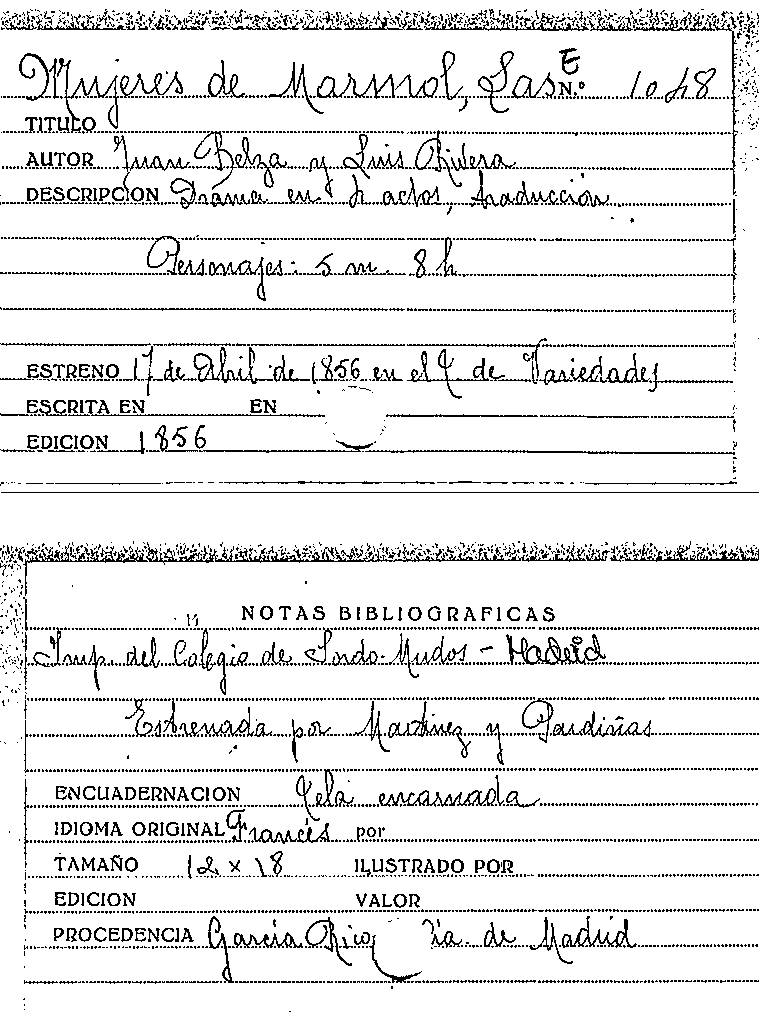 Mujeres de Marmol, Las E N.º 1048
TITULO
AUTOR Juan Belza y Luis Rivera
DESCRIPCION Drama en 4 actos, traducción
Personajes: 5 m. 8 h.
ESTRENO 17 de Abril de 1856 en el T. de Variedades
ESCRITA EN EN
EDICION 1856
NOTAS BIBLIOGRAFICAS
Imp. del Colegio de Sordo-Mudos - Madrid
Estrenada por Martinez y Pardiñas
ENCUADERNACION Tela encarnada
IDIOMA ORIGINAL Francés por
TAMAÑO 12 x 18 ILUSTRADO POR
EDICION VALOR
PROCEDENCIA García Rico de Madrid